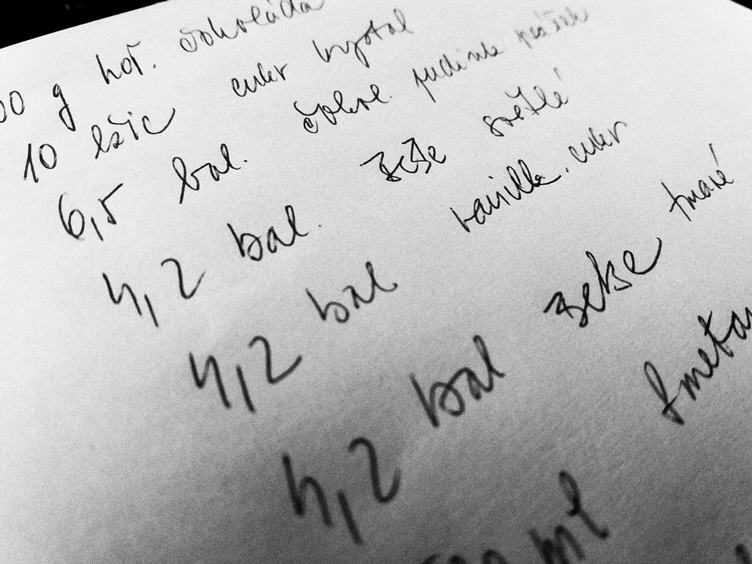 00 g hoř. čokoláda
10 lžic cukr krystal
6,5 bal. čokol. pudink prášek
4,2 bal. želé světlé
4,2 bal vanilk. cukr
4,2 bal tmavé
ml smetan